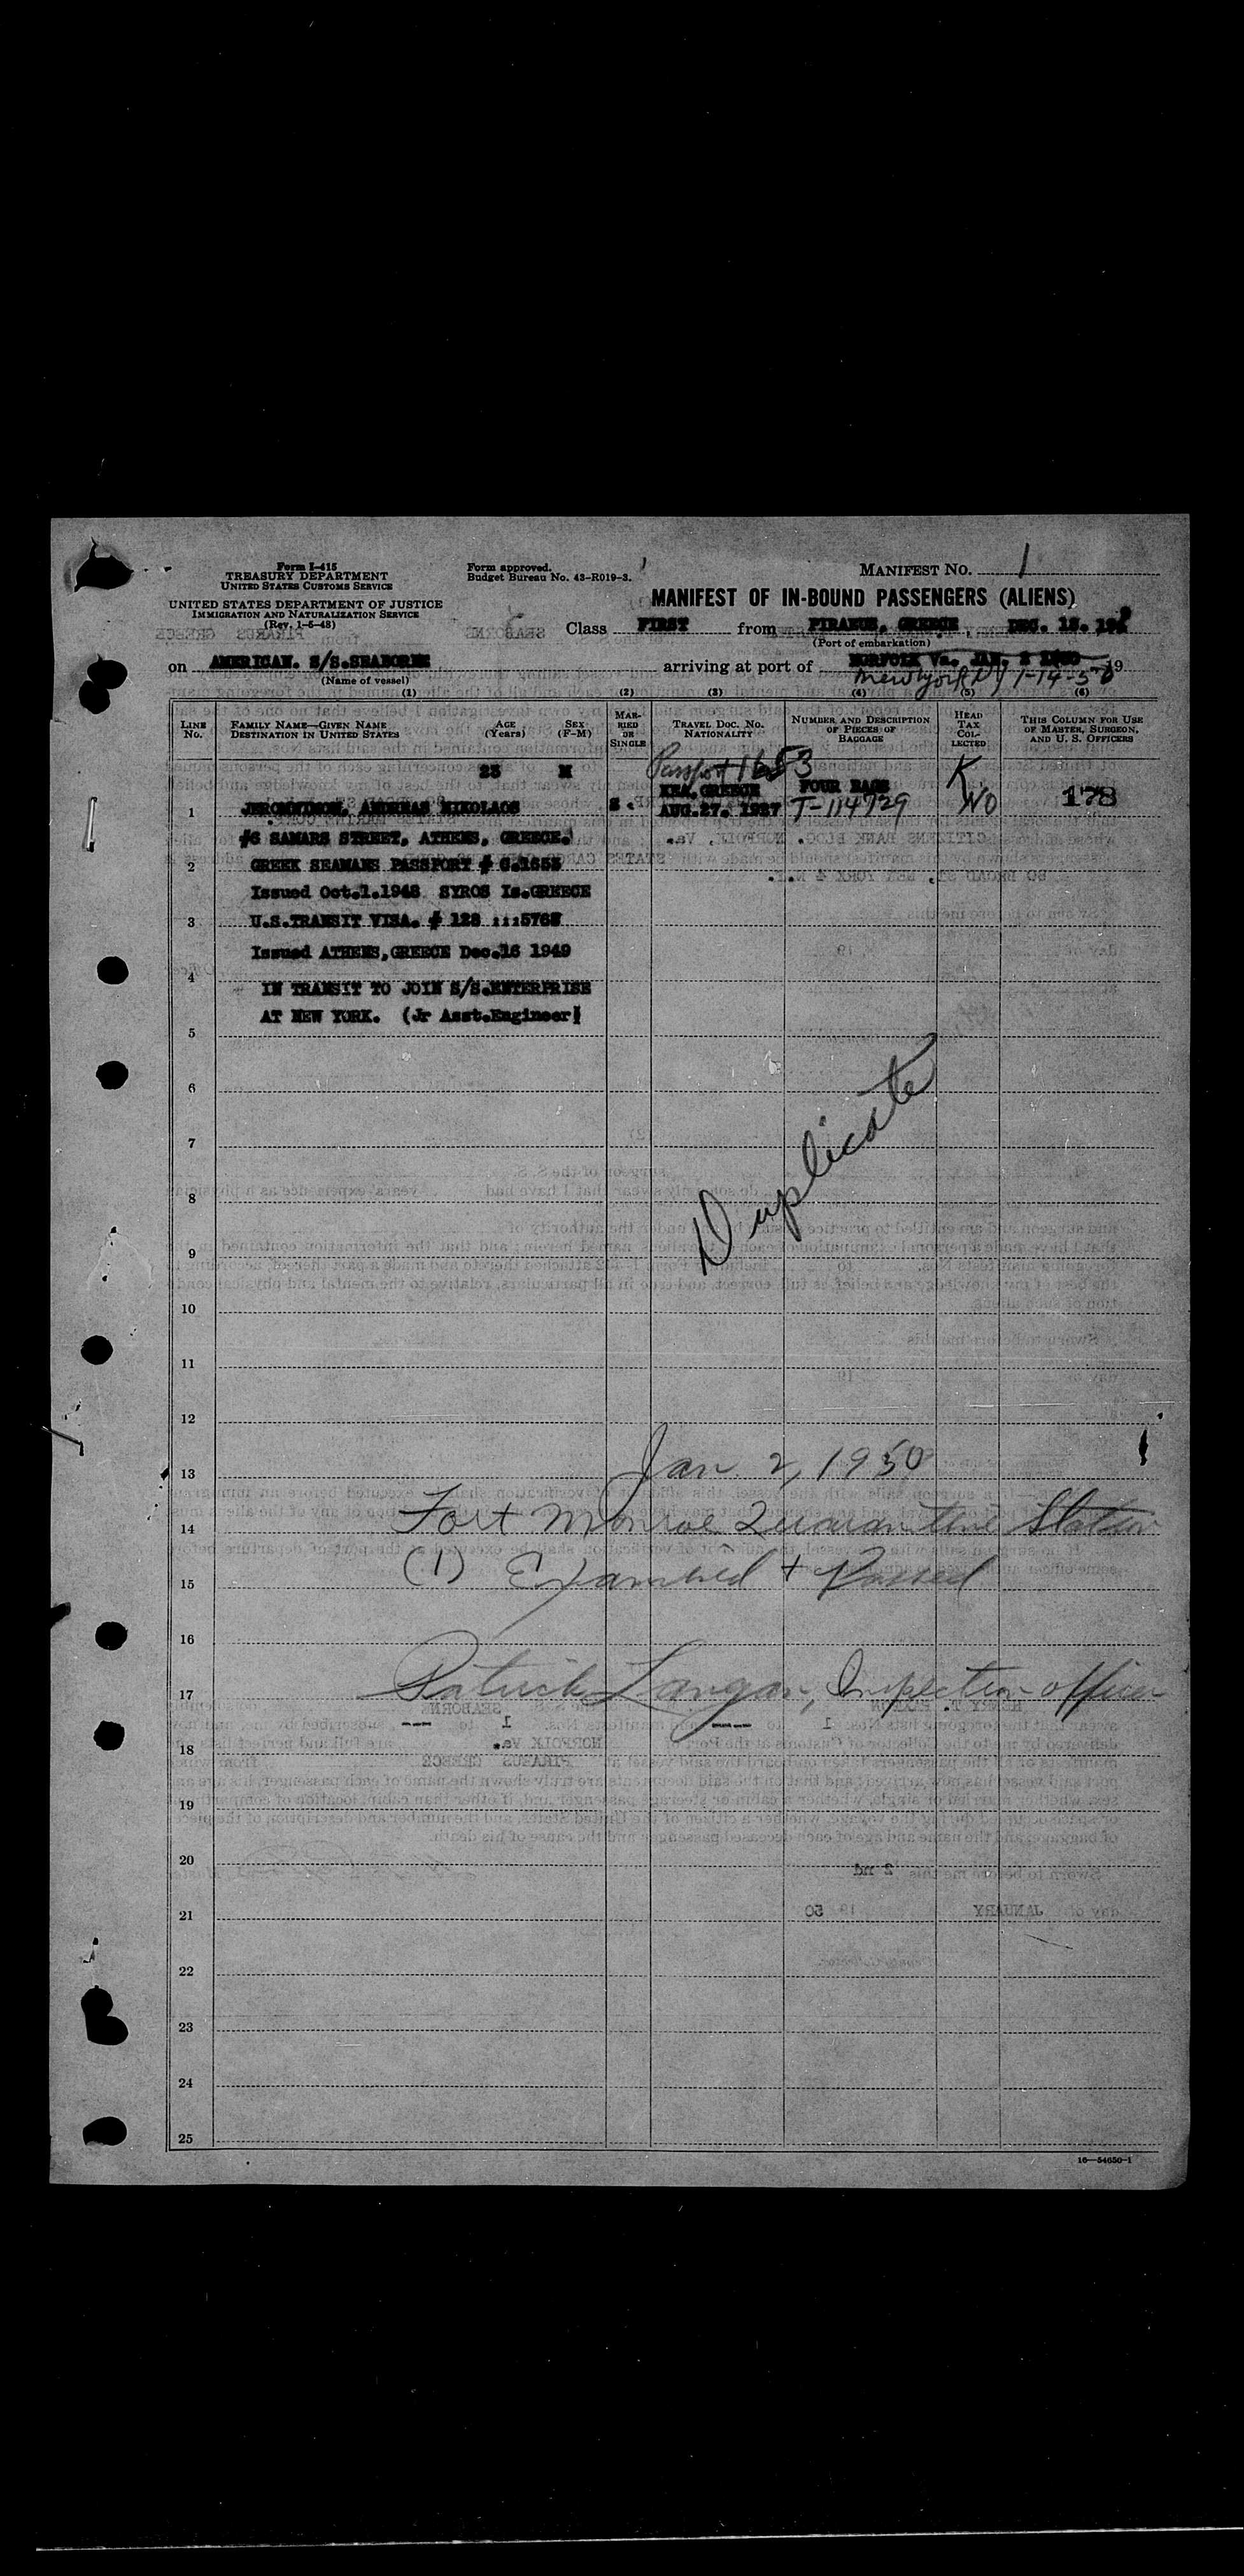 Form I-415
TREASURY DEPARTMENT
UNITED STATES CUSTOMS SERVICE
UNITED STATES DEPARTMENT OF JUSTICE
IMMIGRATION AND NATURALIZATION SERVICE
(Rev. 1-5-48)
Form approved.
Budget Bureau No. 43-R019-3.
MANIFEST NO. 1
MANIFEST OF IN-BOUND PASSENGERS (ALIENS)
Class FIRST from PIRAEUS, GREECE, DEC. 18.
(Port of embarkation)
on AMERICAN. S/S.SEABORNE arriving at port of NORFOLK Va. JAN. 2 19
(Name of vessel)
New York NY 1-14-50
(1) (2) (3) (4) (5) (6)
LINE No.
FAMILY NAME—GIVEN NAME
DESTINATION IN UNITED STATES
AGE (Years)
SEX (F-M)
MARRIED OR SINGLE
TRAVEL DOC. NO.
NATIONALITY
NUMBER AND DESCRIPTION OF PIECES OF BAGGAGE
HEAD TAX COLLECTED
THIS COLUMN FOR USE OF MASTER, SURGEON, AND U. S. OFFICERS
Passport 1653
M
KEA.GREECE FOUR BAGS K
1 ANDREAS NIKOLAOS S. AUG.27. 1927 T-114729 NO 178
#6 SAMARS STREET, ATHENS, GREECE.
2 GREEK SEAMANS PASSPORT #
Issued Oct.1.1948 SYROS Is.GREECE
3 U.S.TRANSIT VISA. # 128
Issued ATHENS,GREECE Dec.16 1949
4
IN TRANSIT TO JOIN S/S.ENTERPRISE
AT NEW YORK. (Jr Asst.Engineer)
5
6
7
8
Duplicate
9
10
11
12
Jan 2, 1950
13
Fort Monroe Quarantine Station
14
(1) Examined + Passed
15
16
Patrick Langan, Inspection officer
17
18
19
20
21
22
23
24
25
16—54650-1